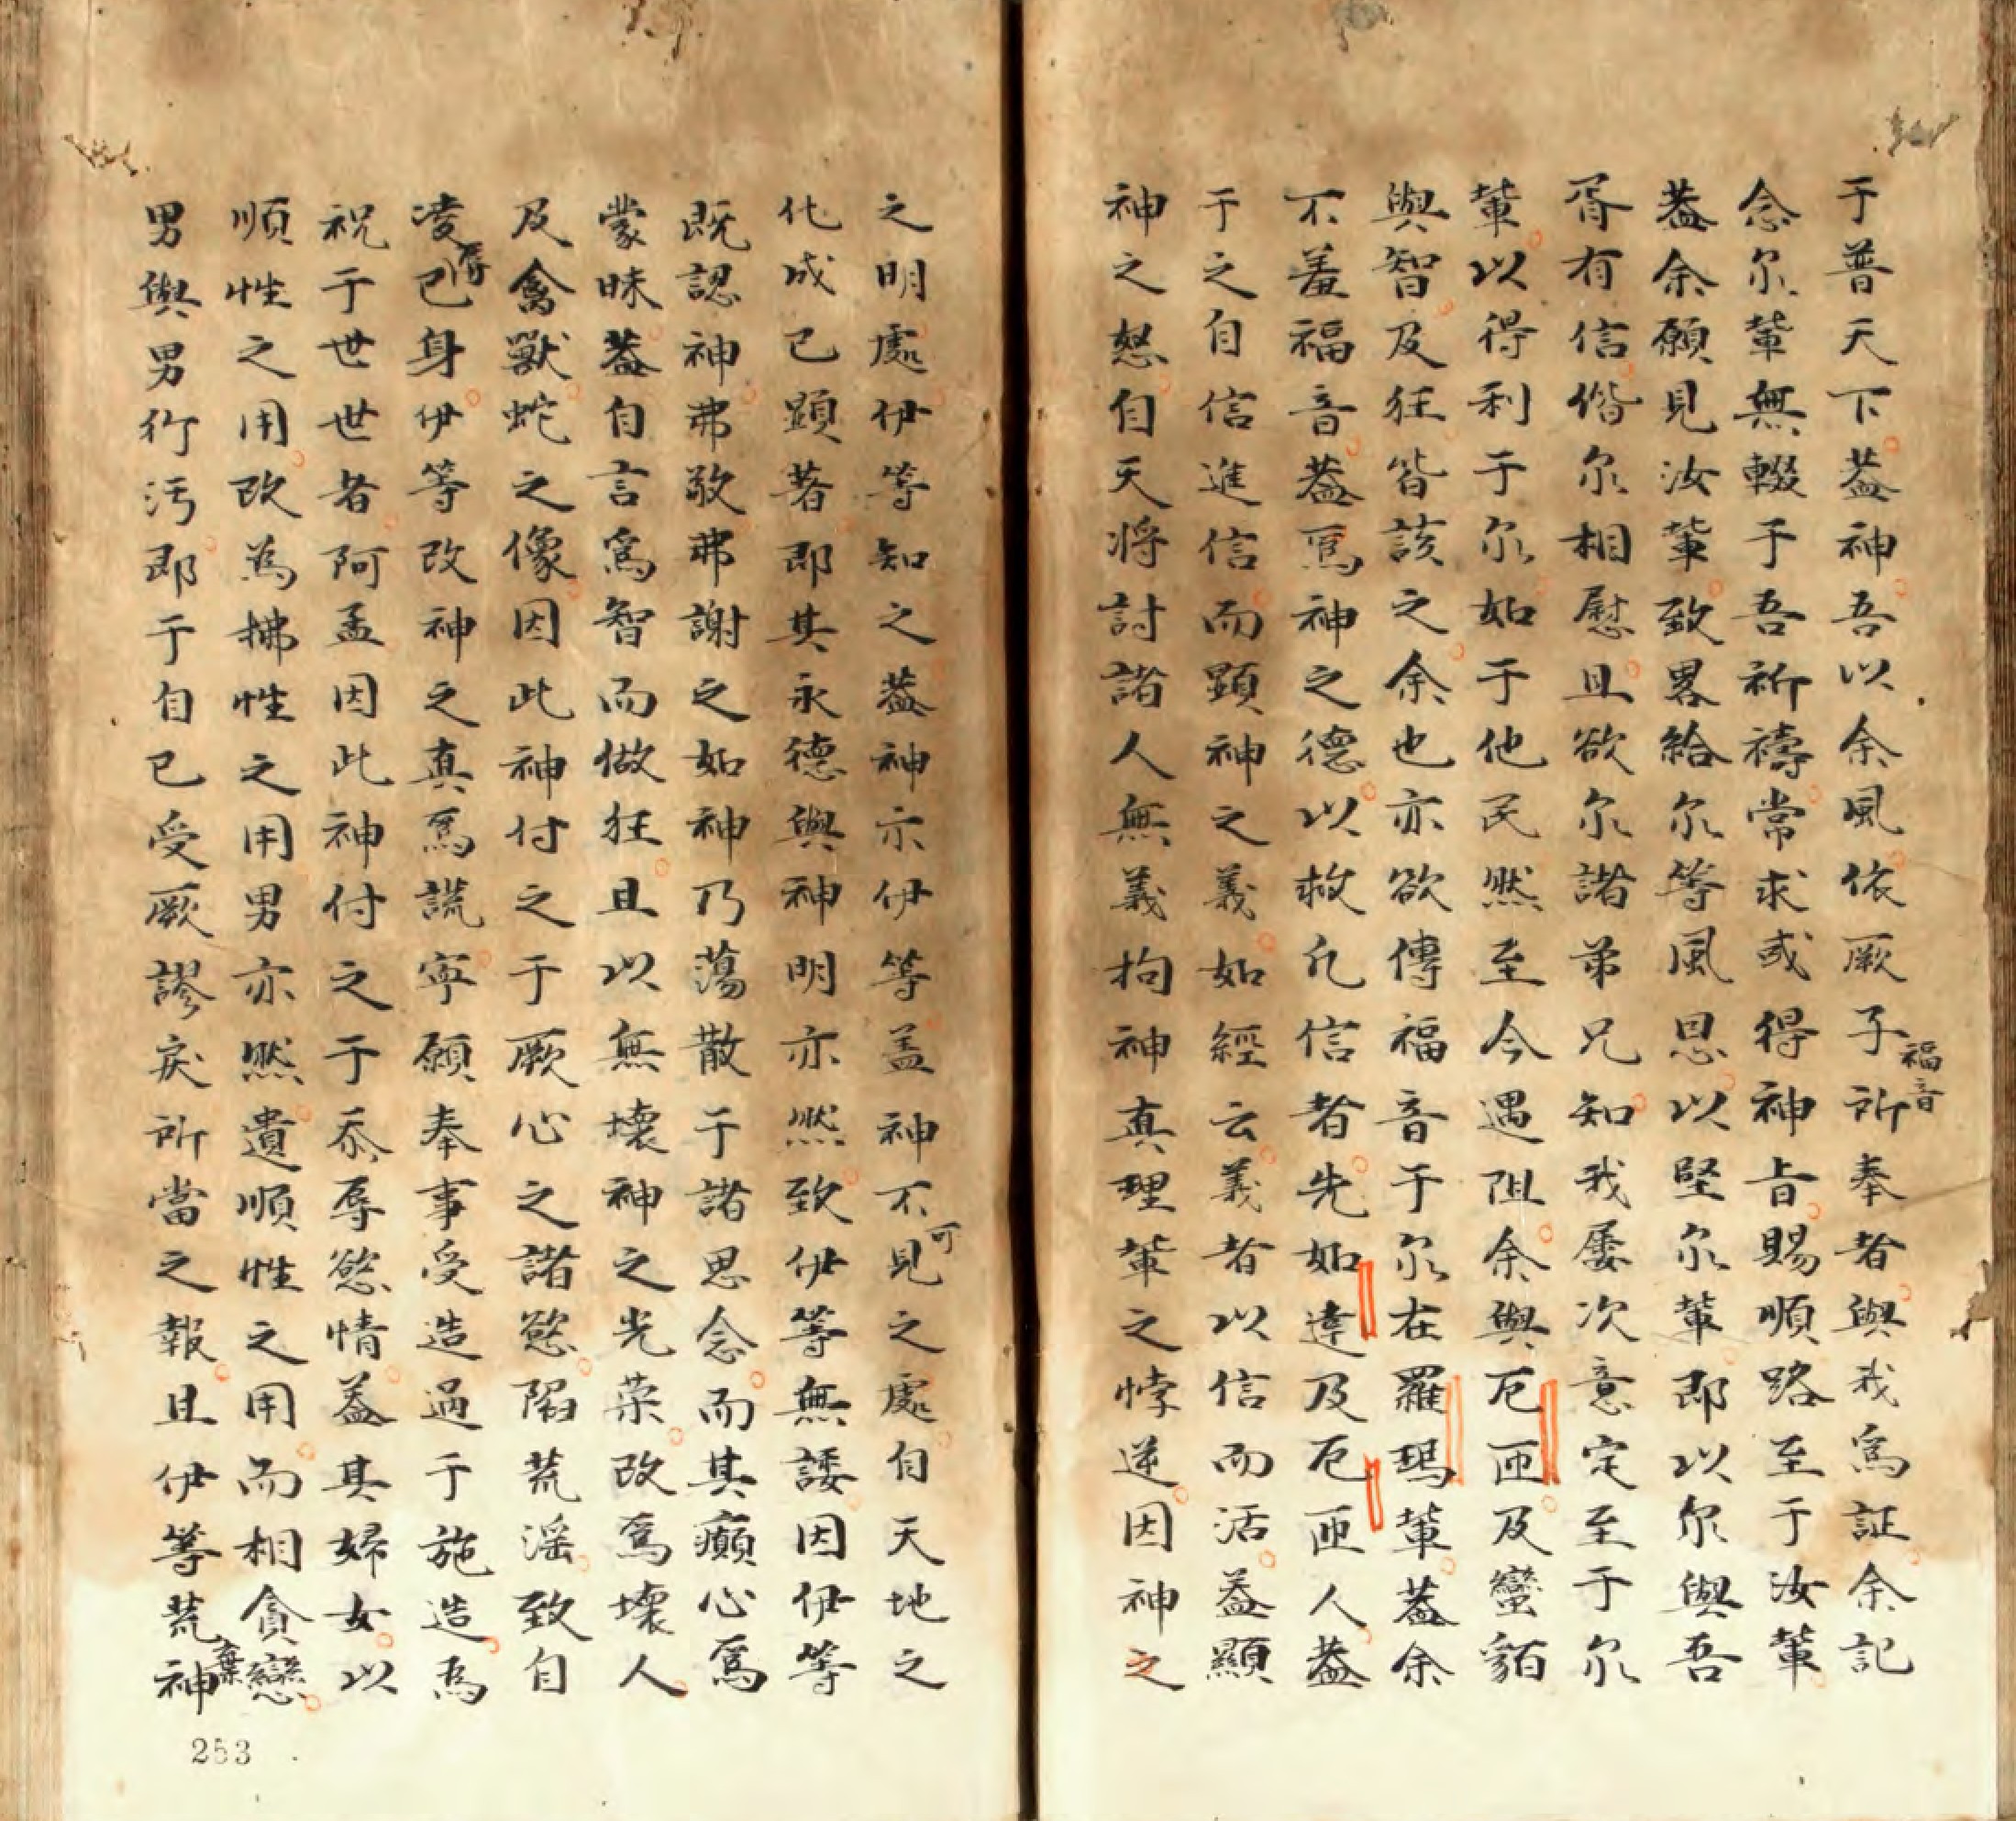 于普天下盖神吾以余風依厥子福音所奉者與我爲証余記
念尔輩無輟于吾祈禱常求或得神旨賜順路至于汝輩
盖余願見汝輩致畧給尔等風恩以堅尔輩即以尔與吾
胥有信偕尔相慰且欲尔諸弟兄知我屡次意定至于尔
輩以得利于尔如于他民然至今遇阻余與厄匝及蠻貊
與智及狂皆該之余也亦欲傳福音于尔在羅瑪輩盖余
不羞福音盖爲神之德以救凢信者先如達及厄匝人盖
于之自信進信而顕神之義如經云義者以信而活盖顯
神之怒自天将討諸人無義拘神真理輩之悖逆因神之
之明處伊等知之盖神示伊等盖神不可見之處自天地之
化成已顕著即其永德與神明亦然致伊等無諉因伊等
既認神弗敬弗謝之如神乃蕩散于諸思念而其癲心爲
蒙昧盖自言爲智而做狂且以無壞神之光荣改爲壞人
及禽獸蛇之像因此神付之于厥心之諸慾陷荒滛致自
凌辱已身伊等改神之真爲謊寜願奉事受造過于施造為
祝于世世者阿孟因此神付之于忝辱慾情盖其婦女以
順性之用改為拂性之用男亦然遺順性之用而相貪戀
男與男行污即于自已受厥謬戾所當之報且伊等荒棄神
253